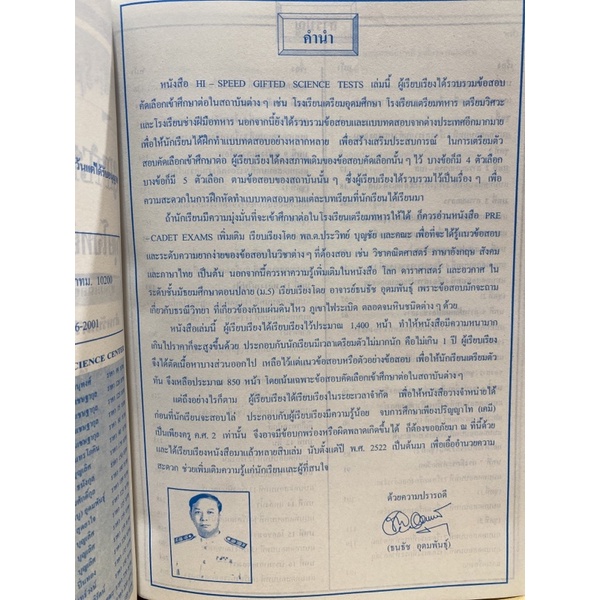 คำนำ
หนังสือ HI – SPEED GIFTED SCIENCE TESTS เล่มนี้ ผู้เรียบเรียงได้รวบรวมข้อสอบ
คัดเลือกเข้าศึกษาต่อในสถาบันต่าง ๆ เช่น โรงเรียนเตรียมอุดมศึกษา โรงเรียนเตรียมทหาร เตรียมวิศวะ
และโรงเรียนช่างฝีมือทหาร นอกจากนี้ยังได้รวบรวมข้อสอบและแบบทดสอบจากต่างประเทศอีกมากมาย
เพื่อให้นักเรียนได้ฝึกทำแบบทดสอบอย่างหลากหลาย เพื่อสร้างเสริมประสบการณ์ ในการเตรียมตัว
สอบคัดเลือกเข้าศึกษาต่อ ผู้เรียบเรียงได้คงสภาพเดิมของข้อสอบคัดเลือกนั้น ๆ ไว้ บางข้อก็มี 4 ตัวเลือก
บางข้อก็มี 5 ตัวเลือก ตามข้อสอบของสถาบันนั้น ๆ ซึ่งผู้เรียบเรียงได้รวบรวมไว้เป็นเรื่อง ๆ เพื่อ
ความสะดวกในการฝึกหัดทำแบบทดสอบตามแต่ละบทเรียนที่นักเรียนได้เรียนมา
ถ้านักเรียนมีความมุ่งมั่นที่จะเข้าศึกษาต่อในโรงเรียนเตรียมทหารให้ได้ ก็ควรอ่านหนังสือ PRE
– CADET EXAMS เพิ่มเติม เรียบเรียงโดย พล.ต.ประวิทย์ บุญชัย และคณะ เพื่อที่จะได้รู้แนวข้อสอบ
และระดับความยากง่ายของข้อสอบในวิชาต่าง ๆ ที่ต้องสอบ เช่น วิชาคณิตศาสตร์ ภาษาอังกฤษ สังคม
และภาษาไทย เป็นต้น นอกจากนี้ควรหาความรู้เพิ่มเติมในหนังสือ โลก ดาราศาสตร์ และอวกาศ ใน
ระดับชั้นมัธยมศึกษาตอนปลาย (ม.5) เรียบเรียงโดย อาจารย์ธนธัช อุตมพันธุ์ เพราะข้อสอบมักจะถาม
เกี่ยวกับธรณีวิทยา ที่เกี่ยวข้องกับแผ่นดินไหว ภูเขาไฟระเบิด ตลอดจนหินชนิดต่าง ๆ ด้วย
หนังสือเล่มนี้ ผู้เรียบเรียงได้เรียบเรียงไว้ประมาณ 1,400 หน้า ทำให้หนังสือมีความหนามาก
เกินไปราคาก็จะสูงขึ้นด้วย ประกอบกับนักเรียนมีเวลาเตรียมตัวไม่มากนัก คือไม่เกิน 1 ปี ผู้เรียบเรียง
จึงได้ตัดเนื้อหาบางส่วนออกไป เหลือไว้แต่แนวข้อสอบหรือตัวอย่างข้อสอบ เพื่อให้นักเรียนเตรียมตัว
ทัน จึงเหลือประมาณ 850 หน้า โดยเน้นเฉพาะข้อสอบคัดเลือกเข้าศึกษาต่อในสถาบันต่าง ๆ
แต่ถึงอย่างไรก็ตาม ผู้เรียบเรียงได้เรียบเรียงในระยะเวลาจำกัด เพื่อให้หนังสือวางจำหน่ายได้
ก่อนที่นักเรียนจะสอบไล่ ประกอบกับผู้เรียบเรียงมีความรู้น้อย จบการศึกษาเพียงปริญญาโท (เคมี)
เป็นเพียงครู ค.ศ. 2 เท่านั้น จึงอาจมีข้อบกพร่องหรือผิดพลาดเกิดขึ้นได้ ก็ต้องขออภัยมา ณ ที่นี้ด้วย
และได้เรียบเรียงหนังสือมาแล้วหลายสิบเล่ม นับตั้งแต่ปี พ.ศ. 2522 เป็นต้นมา เพื่อเอื้ออำนวยความ
สะดวก ช่วยเพิ่มเติมความรู้แก่นักเรียนและผู้ที่สนใจ
ด้วยความปรารถดี
(ธนธัช อุตมพันธุ์)
กทม. 10200
6-2001
SCIENCE CENTER